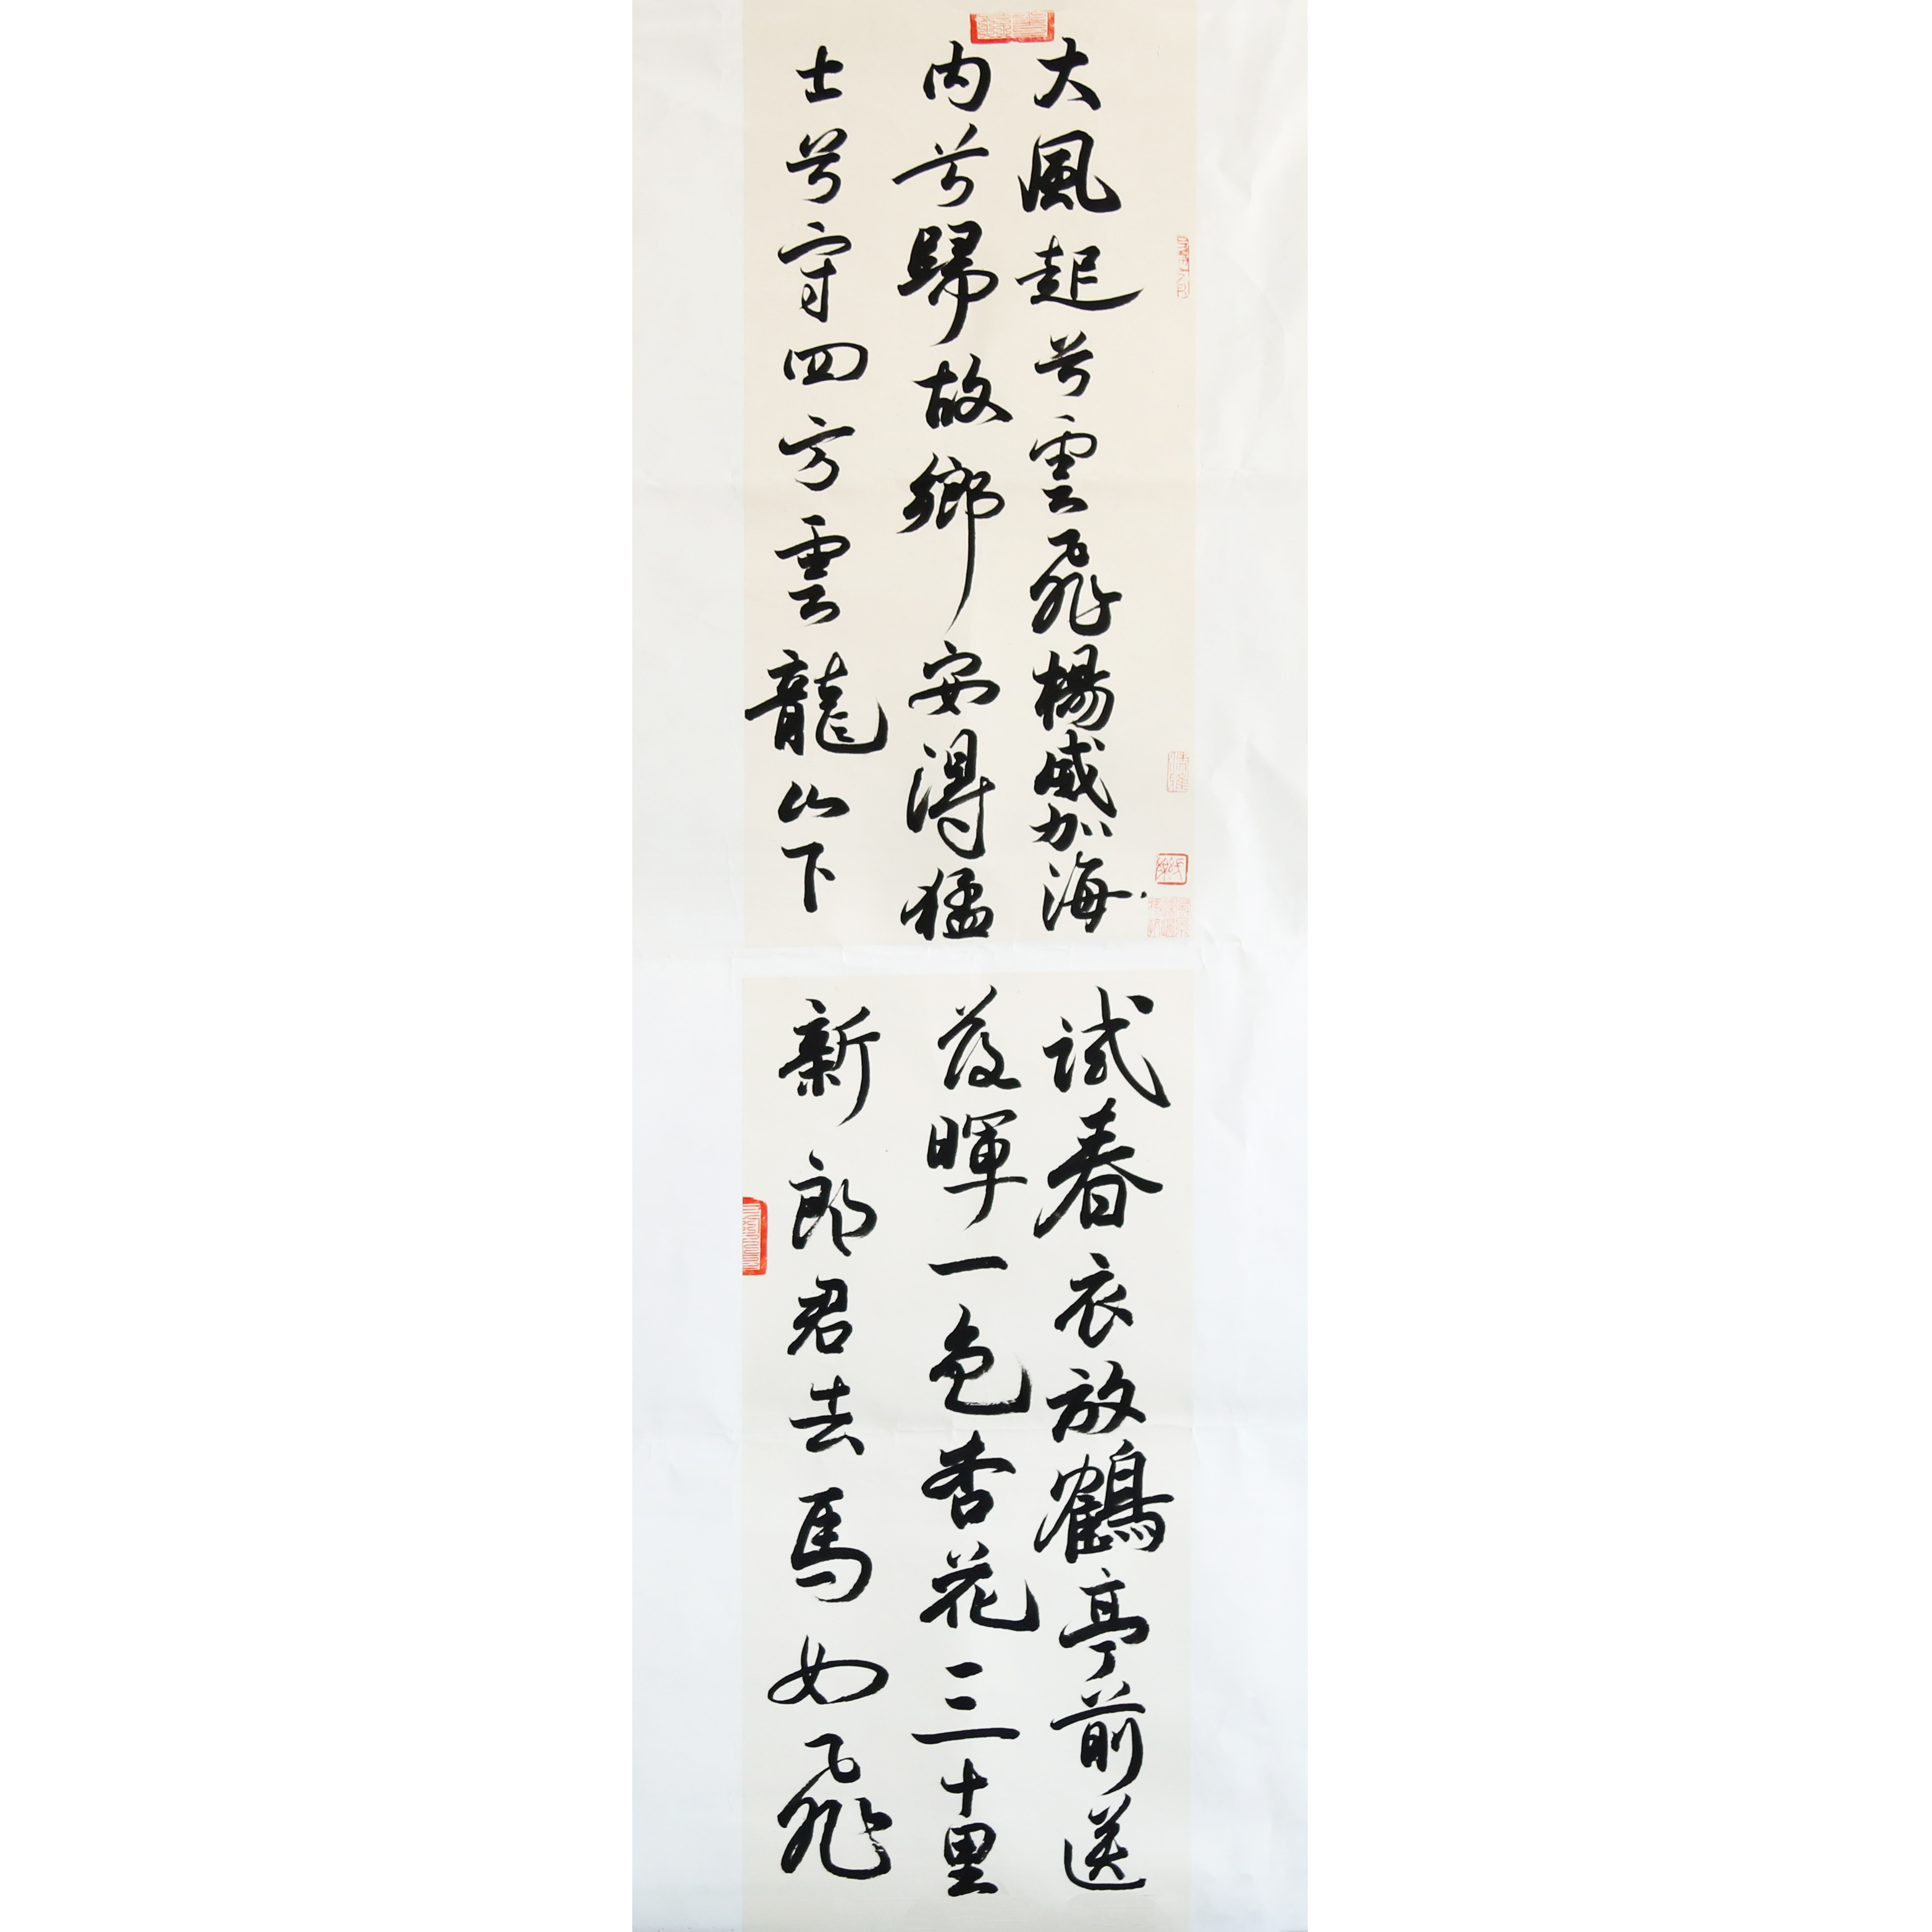 大風起兮雲飛楊威加海
內兮歸故鄉安得猛
士兮守四方雲龍山下
試春衣放鶴亭前送
落暉一色杏花三十里
新郎君去馬如飛